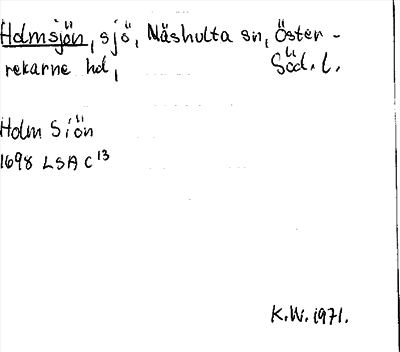 Holmsjön, sjö, Näshulta sn, Öster-
rekarne hd, Söd. l.
Holm Siön
1698 LSA C 13
K.W. 1971.